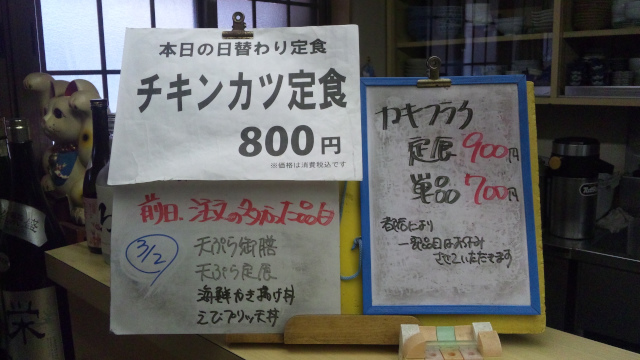 本日の日替わり定食
チキンカツ定食
800円
※価格は消費税込です
前日、注文の多かった品目
3/2
天ぷら御膳
天ぷら定食
海鮮かき揚げ丼
えびプリッツ天丼
カキフライ
定食 900円
単品 700円
都合により
一部品目はお休み
させていただきます
栄